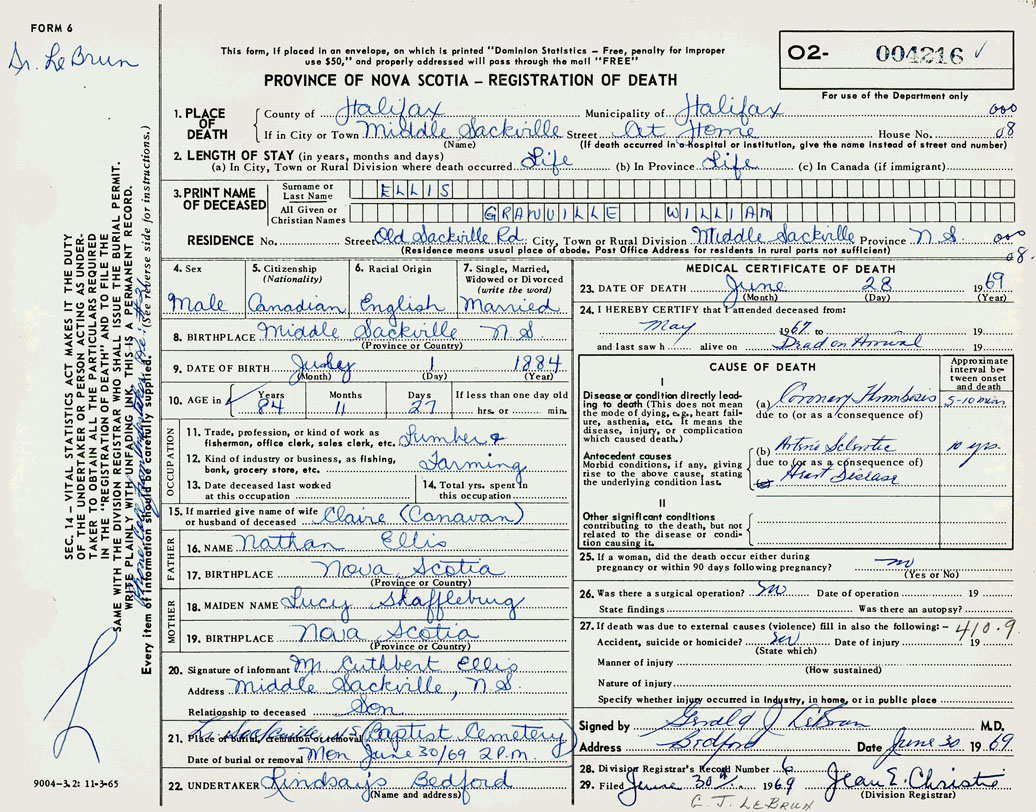 FORM 6
Dr. LeBrun
This form, if placed in an envelope, on which is printed "Dominion Statistics – Free, penalty for improper
use $50," and properly addressed will pass through the mail "FREE"
PROVINCE OF NOVA SCOTIA – REGISTRATION OF DEATH
O2- 004216 ✓
For use of the Department only
1. PLACE OF DEATH
County of Halifax Municipality of Halifax 000
If in City or Town Middle Sackville Street At Home House No. 08
(Name) (If death occurred in a hospital or institution, give the name instead of street and number)
2. LENGTH OF STAY (in years, months and days)
(a) In City, Town or Rural Division where death occurred Life (b) In Province Life (c) In Canada (if immigrant)
3. PRINT NAME OF DECEASED
Surname or Last Name ELLIS
All Given or Christian Names GRANVILLE WILLIAM
RESIDENCE No. Street Old Sackville Rd. City, Town or Rural Division Middle Sackville Province N.S. 000
(Residence means usual place of abode. Post Office Address for residents in rural parts not sufficient) 08.
4. Sex Male
5. Citizenship (Nationality) Canadian
6. Racial Origin English
7. Single, Married, Widowed or Divorced (write the word) Married
8. BIRTHPLACE Middle Sackville N.S.
(Province or Country)
9. DATE OF BIRTH July 1 1884
(Month) (Day) (Year)
10. AGE in Years 84 Months 11 Days 27 If less than one day old hrs. or min.
OCCUPATION
11. Trade, profession, or kind of work as fisherman, office clerk, sales clerk, etc. Lumber &
12. Kind of industry or business, as fishing, bank, grocery store, etc. Farming
13. Date deceased last worked at this occupation
14. Total yrs. spent in this occupation
15. If married give name of wife or husband of deceased Claire (Canavan)
FATHER
16. NAME Nathan Ellis
17. BIRTHPLACE Nova Scotia
(Province or Country)
MOTHER
18. MAIDEN NAME Lucy Shaffleburg
19. BIRTHPLACE Nova Scotia
(Province or Country)
20. Signature of informant Mr. Cuthbert Ellis
Address Middle Sackville, N.S.
Relationship to deceased Son
21. Place of burial, cremation or removal Sackville N.S. (Baptist Cemetery)
Date of burial or removal Mon June 30/69 2 P.M.
22. UNDERTAKER Lindsay's Bedford
(Name and address)
MEDICAL CERTIFICATE OF DEATH
23. DATE OF DEATH June 28 1969
(Month) (Day) (Year)
24. I HEREBY CERTIFY that I attended deceased from:
May 1967 to 19
and last saw h alive on Dead on Arrival 19
CAUSE OF DEATH
Approximate interval between onset and death
I
Disease or condition directly leading to death (This does not mean the mode of dying, e.g., heart failure, asthenia, etc. It means the disease, injury, or complication which caused death.)
(a) Coronary Thrombosis 5-10 mins
due to (or as a consequence of)
Antecedent causes
Morbid conditions, if any, giving rise to the above cause, stating the underlying condition last.
(b) Arterio Sclerotic 10 yrs.
due to (or as a consequence of)
(c) Heart Disease
II
Other significant conditions contributing to the death, but not related to the disease or condition causing it.
25. If a woman, did the death occur either during
pregnancy or within 90 days following pregnancy? no
(Yes or No)
26. Was there a surgical operation? no Date of operation 19
State findings Was there an autopsy?
27. If death was due to external causes (violence) fill in also the following: – 410.9
Accident, suicide or homicide? Date of injury 19
(State which)
Manner of injury
(How sustained)
Nature of injury
Specify whether injury occurred in industry, in home, or in public place
Signed by Gerald J LeBrun M.D.
Address Bedford Date June 30 1969.
28. Division Registrar's Record Number 6
29. Filed June 30th 1969 Jean E. Christie
(Division Registrar)
G. J. LEBRUN
SEC. 14 – VITAL STATISTICS ACT MAKES IT THE DUTY
OF THE UNDERTAKER OR PERSON ACTING AS UNDER-
TAKER TO OBTAIN ALL THE PARTICULARS REQUIRED
IN THE "REGISTRATION OF DEATH" AND TO FILE THE
SAME WITH THE DIVISION REGISTRAR WHO SHALL ISSUE THE BURIAL PERMIT.
WRITE PLAINLY WITH UNFADING INK. THIS IS A PERMANENT RECORD.
Every item of information should be carefully supplied. (See reverse side for instructions.)
9004-3.2: 11-3-65